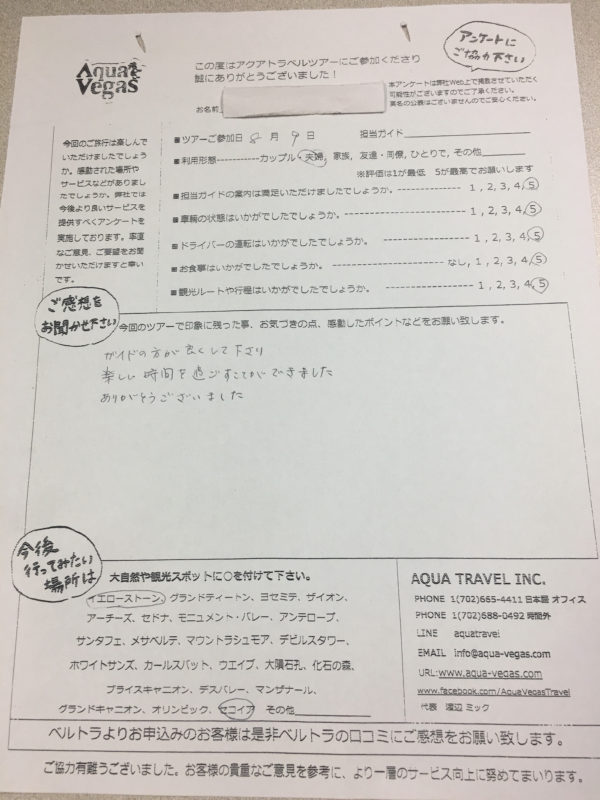 Aqua Vegas
この度はアクアトラベルツアーにご参加くださり
誠にありがとうございました！
アンケートに
ご協力下さい
本アンケートは弊社Web上で掲載させていただく
可能性がございますのでご了承ください。
実名の公表はございませんのでご安心ください。
お名前
今回のご旅行は楽しんで
いただけましたでしょう
か。感動された場所や
サービスなどがありまし
たでしょうか。弊社では
今後より良いサービスを
提供すべくアンケートを
実施しております。率直
なご意見、ご要望をお聞
かせいただけますと幸い
です。
■ツアーご参加日 8 月 9 日 担当ガイド
■利用形態-----------カップル・夫婦, 家族, 友達・同僚, ひとりで, その他
※評価は1が最低 5が最高でお願いします
■担当ガイドの案内は満足いただけましたでしょうか。 ---------------- 1 , 2, 3, 4, 5
■車輌の状態はいかがでしたでしょうか。 ---------------- 1 , 2, 3, 4, 5
■ドライバーの運転はいかがでしたでしょうか。 ---------------- 1 , 2, 3, 4, 5
■お食事はいかがでしたでしょうか。 ---------------- なし, 1 , 2, 3, 4, 5
■観光ルートや行程はいかがでしたでしょうか。 ---------------- 1 , 2, 3, 4, 5
ご感想を
お聞かせ下さい
今回のツアーで印象に残った事、お気づきの点、感動したポイントなどをお願い致します。
ガイドの方が良くして下さり
楽しい時間を過ごすことができました
ありがとうございました
今後
行ってみたい
場所は
大自然や観光スポットに○を付けて下さい。
イエローストーン、グランドティートン、ヨセミテ、ザイオン、
アーチーズ、セドナ、モニュメント・バレー、アンテロープ、
サンタフェ、メサベルデ、マウントラシュモア、デビルスタワー、
ホワイトサンズ、カールスバット、ウエイブ、大隕石孔、化石の森、
ブライスキャニオン、デスバレー、マンザナール、
グランドキャニオン、オリンピック、セコイア その他
AQUA TRAVEL INC.
PHONE 1(702)665-4411 日本語 オフィス
PHONE 1(702)688-0492 時間外
LINE aquatravel
EMAIL info@aqua-vegas.com
URL:www.aqua-vegas.com
www.facebook.com/AquaVegasTravel
代表 渡辺 ミック
ベルトラよりお申込みのお客様は是非ベルトラの口コミにご感想をお願い致します。
ご協力有難うございました。お客様の貴重なご意見を参考に、より一層のサービス向上に努めてまいります。